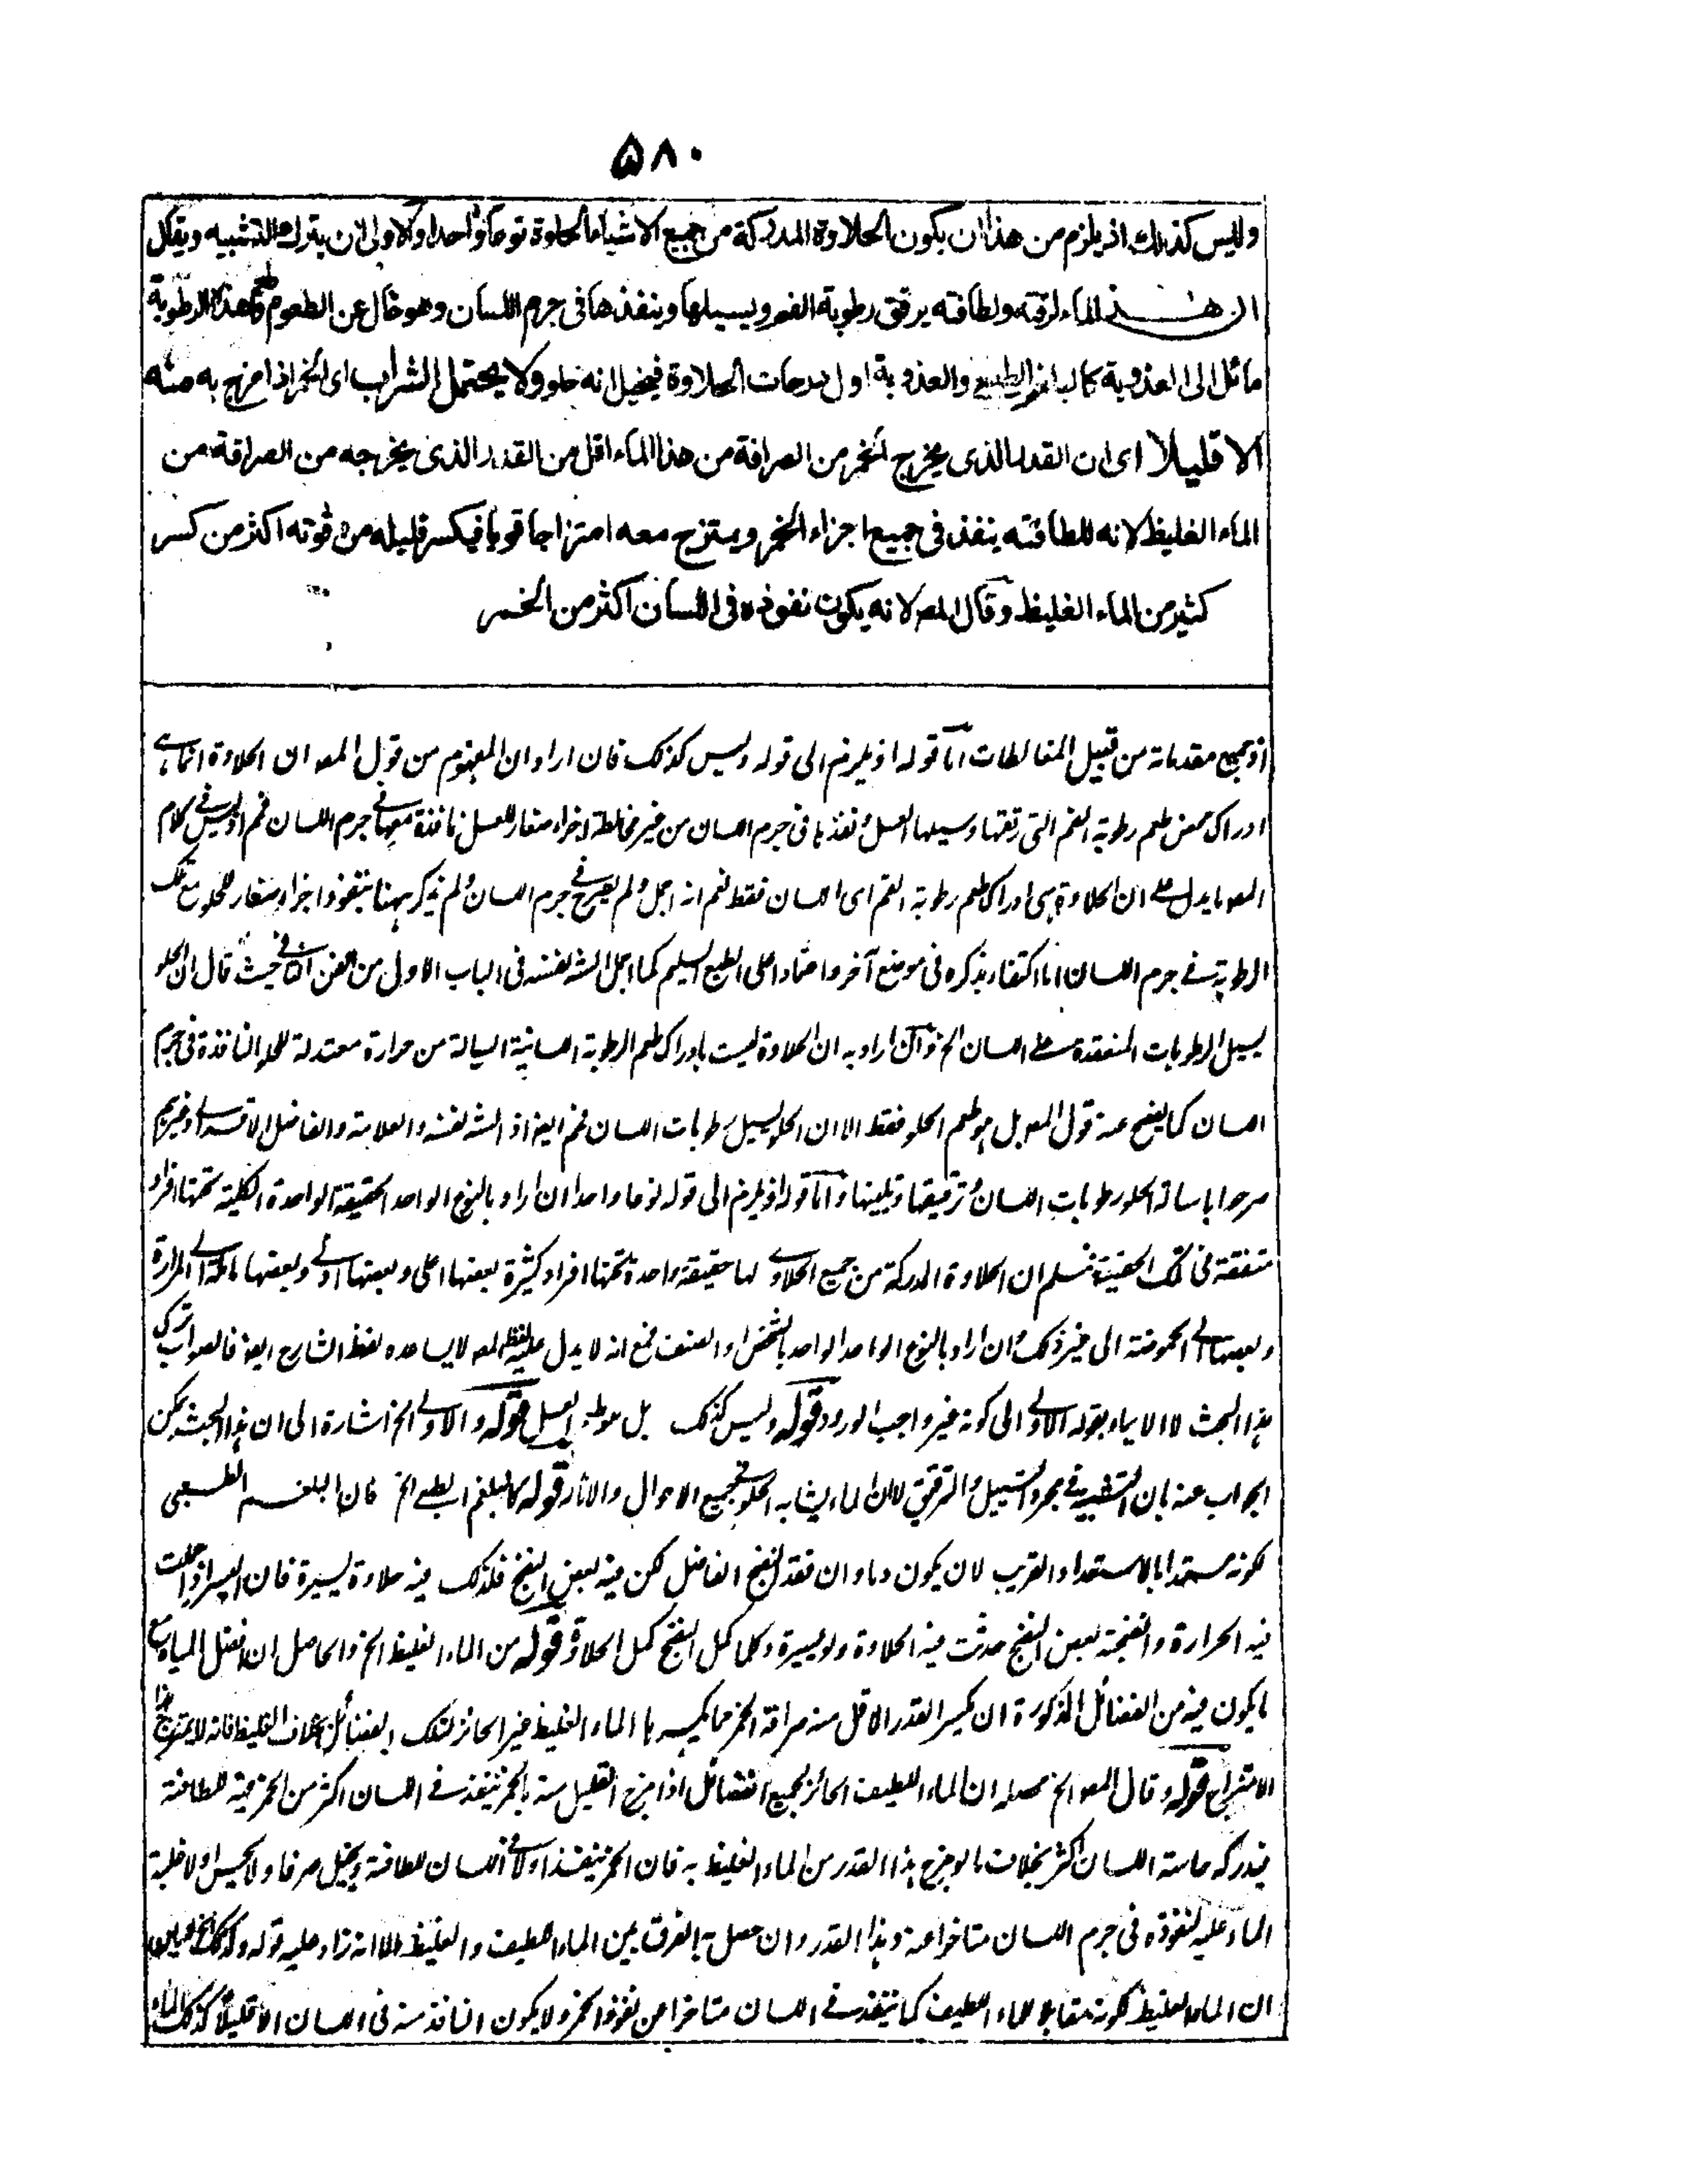 ۵۸۰
وليس كذلك اذ يلزم من هذا ان يكون الحلاوة المدركة من جميع الاشياء الحلوة نوعا واحدا والاولى ان يترك التشبيه ويقال
ان هذا الماء لرقته ولطافته يرقق رطوبة الفم ويسيلها وينفذها فى جرم اللسان وهو خال عن الطعوم وهذه الرطوبة
مائل الى العذوبة كالبلغم الطبيعى والعذوبة اول درجات الحلاوة فيخيل انه حلو ولا يحتمل الشراب اى الخمر اذا مزج به منه
الا قليلا اى ان القدر الذى يخرج الخمر من الصرافة من هذا الماء اقل من القدر الذى يخرجه من الصرافة من
الماء الغليظ لانه للطافته ينفذ فى جميع اجزاء الخمر ويمتزج معه امتزاجا قويا فيكسر قليله من قوته اكثر من كسر
كثير من الماء الغليظ وقال المص لانه يكون نفوذه فى اللسان اكثر من الخمر
اذ جميع مقدماته من قبيل المغالطات اما قوله اذ يلزم الى قوله وليس كذلك فان اراد ان المفهوم من قول المص ان الحلاوة انما هى
ادراك محض طعم رطوبة الفم التى رققها وسيلها العسل ونفذها فى جرم اللسان من غير مخالطة اجزاء صغار للعسل نافذة معها فى جرم اللسان فمم اذ ليس فى كلام
المص ما يدل على ان الحلاوة هى ادراك طعم رطوبة الفم اى اللسان فقط نعم انه اجمل ولم يصرح فى جرم اللسان ولم يذكر ههنا بنفوذ اجزاء صغار للحلو مع تلك
الرطوبة فى جرم اللسان اما اكتفاء بذكره فى موضع آخر واعتمادا على الطبع السليم كما اجمل الش نفسه فى الباب الاول من الفن الثانى حيث قال ان الحلو
يسيل الرطوبات المنعقدة على اللسان الخ وان اراد به ان الحلاوة ليست بادراك طعم الرطوبة اللسانية السيالة من حرارة معتدلة للحلو النافذة فى جرم
اللسان كما يفصح عنه قول المص بل هو طعم الحلو فقط الا ان الحلو يسيل رطوبات اللسان فمم ايض اذ الش نفسه والعلامة والفاضل وغيرهم
صرحوا باسالة الحلو رطوبات اللسان وترقيقها وتليينها واما قوله اذ يلزم الى قوله نوعا واحدا ان اراد بالنوع الواحد الحقيقة الواحدة الكلية تحتها افراد
متفقة فى تلك الحقيقة فمسلم ان الحلاوة المدركة من جميع الحلاوى لها حقيقة واحدة تحتها افراد كثيرة بعضها اعلى وبعضها ادنى وبعضها مائلة الى المرارة
وبعضها الى الحموضة الى غير ذلك وان اراد بالنوع الواحد الواحد بالشخص او الصنف فمع انه لا يدل عليه لفظ المص لا يساعده لفظ الشارح ايض فالصواب ترك
هذا البحث لا الايماء بقوله الاولى الى كونه غير واجب الورود قوله وليس كذلك بل هو العسل قوله والاولى الخ اشارة الى ان هذا البحث يمكن
الجواب عنه بان التشبيه فى مجرد التسييل والترقيق لا ان الماء يشابه الحلو فى جميع الاحوال والآثار قوله كالبلغم الطبيعى الخ فان البلغم الطبيعى
لكونه مستعدا بالاستعداد القريب لان يكون دما وان فقد النضج الفاضل لكن فيه بعض النضج فلذلك فيه حلاوة يسيرة فان اذا عملت
فيه الحرارة وانضجته بعض النضج حدثت فيه الحلاوة ولو يسيرة وكلما كمل النضج كمل الحلاوة قوله من الماء الغليظ الخ والحاصل ان افضل المياه مع
ما يكون فيه من الفضائل المذكورة ان يكسر القدر الاقل منه صرافة الخمر مما يكسرها الماء الغليظ غير الحائز لتلك الفضائل بخلاف الغليظ فانه لا يمتزج هذا
الامتزاج قوله وقال المص الخ محصله ان الماء اللطيف الحائز لجميع الفضائل اذا مزج القليل منه بالخمر ينفذ فى اللسان اكثر من الخمر للطافته
فيدركه حاسة اللسان اكثر بخلاف ما لو مزج هذا القدر من الماء الغليظ به فان الخمر ينفذ اولا فى اللسان للطافته ويخيل صرفا ولا يحس اولا غلبة
الماء عليه لنفوذه فى جرم اللسان متاخرا عنه وهذا القدر وان حصل به الفرق بين الماء اللطيف والغليظ الا انه زاد عليه قوله وكذلك
ان الماء الغليظ لكونه مقابلا للماء اللطيف كما ينفذ فى اللسان متاخرا من نفوذ الخمر ولا يكون النافذ منه فى اللسان الا قليلا كذلك الماء